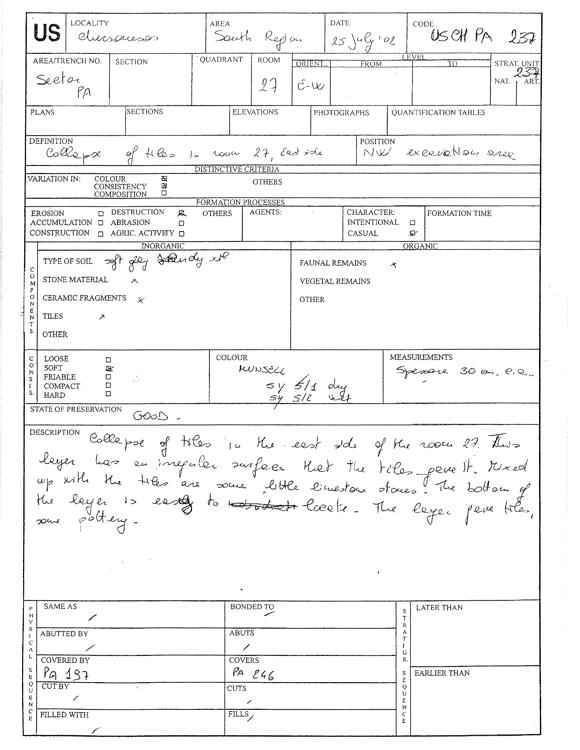 US
LOCALITY
Chersonesos
AREA
South Region
DATE
25 July '02
CODE
USCH PA 237
AREA/TRENCH NO.
Sector
PA
SECTION
QUADRANT
ROOM
27
ORIENT.
E-W
LEVEL
FROM
TO
STRAT. UNIT
237
NAT.
ART.
PLANS
SECTIONS
ELEVATIONS
PHOTOGRAPHS
QUANTIFICATION TABLES
DEFINITION
Collapse of tiles in room 27, East side
POSITION
NW excavation area
DISTINCTIVE CRITERIA
VARIATION IN:
COLOUR
CONSISTENCY
COMPOSITION
OTHERS
FORMATION PROCESSES
EROSION
ACCUMULATION
CONSTRUCTION
DESTRUCTION
ABRASION
AGRIC. ACTIVIITY
OTHERS
AGENTS:
CHARACTER:
INTENTIONAL
CASUAL
FORMATION TIME
COMPONENTS
INORGANIC
TYPE OF SOIL soft grey sandy soil
STONE MATERIAL x
CERAMIC FRAGMENTS x
TILES x
OTHER
ORGANIC
FAUNAL REMAINS x
VEGETAL REMAINS
OTHER
CONSIS.
LOOSE
SOFT
FRIABLE
COMPACT
HARD
COLOUR
MUNSELL
5Y 5/1 dry
5Y 5/2 wet
MEASUREMENTS
Spessore 30 cm. c.a.
STATE OF PRESERVATION
GOOD.
DESCRIPTION
Collapse of tiles in the east side of the room 27. This
layer has an irregular surface that the tiles gave it. Mixed
up with the tiles are some little limestone stones. The bottom of
the layer is easy to locate. The layer gave tiles,
some pottery.
PHYSICAL SEQUENCE
SAME AS /
BONDED TO /
ABUTTED BY /
ABUTS /
COVERED BY
PA 197
COVERS
PA 246
CUT BY /
CUTS /
FILLED WITH /
FILLS /
STRATIGR. SEQUENCE
LATER THAN
EARLIER THAN